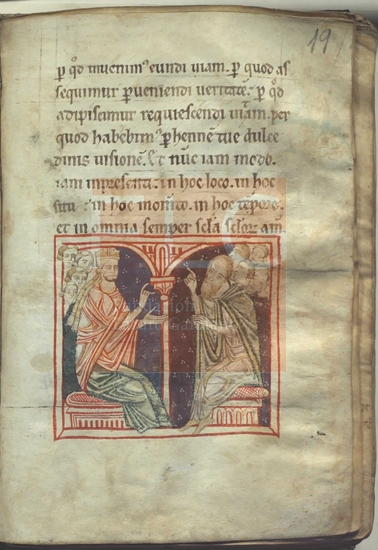 19
p qd inuenim' eundi uiam. p quod as
sequimur perueniendi ueritatē. p qd
adipiscimur requiescendi uitam. per
quod habebim' phennē tue dulce
dinis uisionē. Et nūc iam modo.
iam inpresenti. in hoc loco. in hoc
situ. in hoc momto. in hoc tēpore.
et in omnia semper scla sclor am.